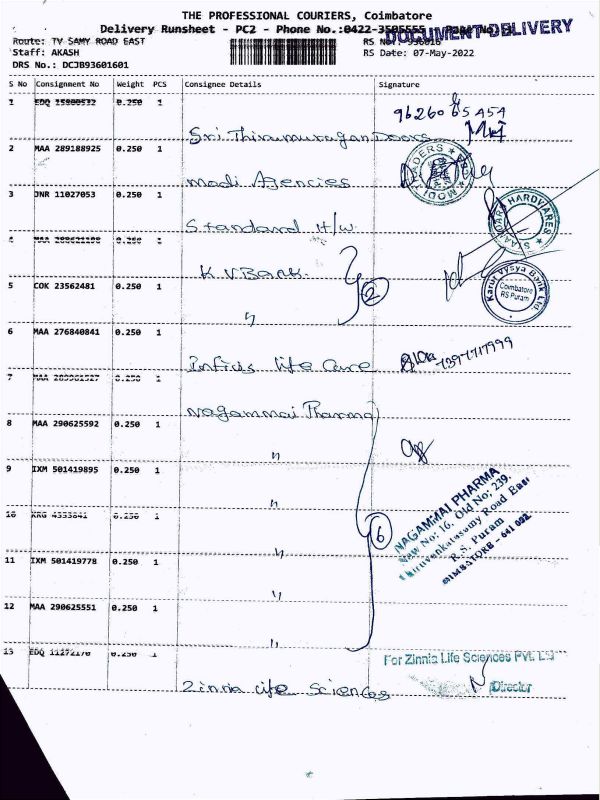 THE PROFESSIONAL COURIERS, Coimbatore
Delivery Runsheet - PC2 - Phone No.:0422-3505555
DOCUMENT DELIVERY
Route: TV SAMY ROAD EAST
RS No:
Staff: AKASH
RS Date: 07-May-2022
DRS No.: DCJB93601601
S No Consignment No Weight PCS Consignee Details Signature
1 EDQ 0.250 1
Sri Thirumurugan Doors
2 MAA 289188925 0.250 1
Modi Agencies
MODI TRADERS
3 JNR 11027053 0.250 1
Standard H/W
HARDWARES
0.250 1
K V Bank
5 COK 23562481 0.250 1
〃
2
Karur Vysya Bank Ltd
Coimbatore
RS Puram
6 MAA 276840841 0.250 1
life Care
7397717999
7 MAA 0.250 1
Nagammai Pharma
8 MAA 290625592 0.250 1
〃
9 IXM 501419895 0.250 1
〃
10 KRG 0.250 1
〃
6
NAGAMMAI PHARMA
New No: 16, Old No: 239,
Thiruvenkatasamy Road East
R.S. Puram
COIMBATORE - 641 002
11 IXM 501419778 0.250 1
〃
12 MAA 290625551 0.250 1
〃
13 EDQ 0.250 1
Zinnia Life Sciences
For Zinnia Life Sciences Pvt. Ltd
Director